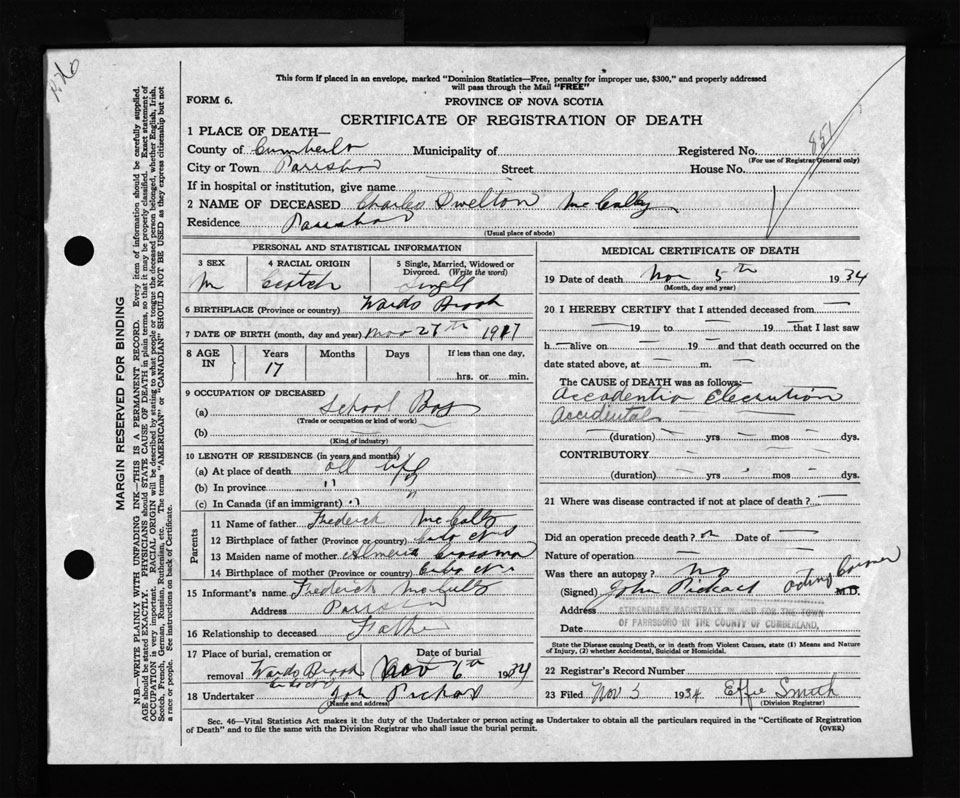 This form if placed in an envelope, marked "Dominion Statistics—Free, penalty for improper use, $300," and properly addressed
will pass through the Mail "FREE"
FORM 6.
PROVINCE OF NOVA SCOTIA
CERTIFICATE OF REGISTRATION OF DEATH
851
1 PLACE OF DEATH—
County of Cumberlo Municipality of Registered No.
(For use of Registrar General only)
City or Town Parrsboro Street House No.
If in hospital or institution, give name
2 NAME OF DECEASED Charles Mc Cally
Residence Parrsboro
(Usual place of abode)
MARGIN RESERVED FOR BINDING
N.B.—WRITE PLAINLY WITH UNFADING INK—THIS IS A PERMANENT RECORD. Every item of information should be carefully supplied.
AGE should be stated EXACTLY. PHYSICIANS should STATE CAUSE OF DEATH in plain terms, so that it may be properly classified. Exact statement of
OCCUPATION is very important. RACIAL ORIGIN will be described by stating to what people or tongue the deceased person belonged, whether English, Irish,
Scotch, French, German, Russian, Ruthenian, etc. The terms "AMERICAN" or "CANADIAN" SHOULD NOT BE USED as they express citizenship but not
a race or people. See instructions on back of Certificate.
PERSONAL AND STATISTICAL INFORMATION
3 SEX 4 RACIAL ORIGIN 5 Single, Married, Widowed or
Divorced. (Write the word)
M Scotch Single
6 BIRTHPLACE (Province or country) Wards Brook
7 DATE OF BIRTH (month, day and year) Nov 27th 1917
8 AGE IN Years Months Days If less than one day,
17 hrs. or min.
9 OCCUPATION OF DECEASED
(a) School Boy
(Trade or occupation or kind of work)
(b)
(Kind of industry)
10 LENGTH OF RESIDENCE (in years and months)
(a) At place of death all life
(b) In province " "
(c) In Canada (if an immigrant) " "
Parents
11 Name of father Frederick Mc Cally
12 Birthplace of father (Province or country)
13 Maiden name of mother Almeria
14 Birthplace of mother (Province or country)
15 Informant's name Frederick
Address Parrsboro
16 Relationship to deceased Father
17 Place of burial, cremation or Date of burial
removal Wards Brook Nov 6th 1934
18 Undertaker
(Name and address)
MEDICAL CERTIFICATE OF DEATH
19 Date of death Nov 5th 1934
(Month, day and year)
20 I HEREBY CERTIFY that I attended deceased from
19 to 19 that I last saw
h alive on 19 and that death occurred on the
date stated above, at m.
The CAUSE of DEATH was as follows:—
Accidental
(duration) yrs mos dys.
CONTRIBUTORY
(duration) yrs mos dys.
21 Where was disease contracted if not at place of death?
Did an operation precede death? no Date of
Nature of operation
Was there an autopsy? No
(Signed) John Pickard acting Coroner M.D.
Address STIPENDIARY MAGISTRATE IN AND FOR THE TOWN
Date OF PARRSBORO IN THE COUNTY OF CUMBERLAND,
State the Disease causing Death, or in death from Violent Causes, state (1) Means and Nature
of Injury, (2) whether Accidental, Suicidal or Homicidal.
22 Registrar's Record Number
23 Filed Nov 5 1934 Effie Smith
(Division Registrar)
Sec. 46—Vital Statistics Act makes it the duty of the Undertaker or person acting as Undertaker to obtain all the particulars required in the "Certificate of Registration
of Death" and to file the same with the Division Registrar who shall issue the burial permit.
(OVER)